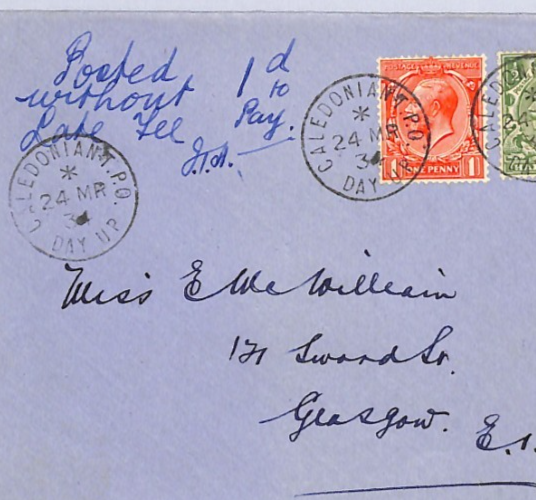 Posted 1d
without to
Late Fee Pay.
CALEDONIAN T.P.O.
24 MR
34
DAY UP
CALEDONIAN T.P.O.
24 MR
34
DAY UP
POSTAGE REVENUE
ONE PENNY 1
24
Miss E McWilliam
171 Sword St.
Glasgow. E.1